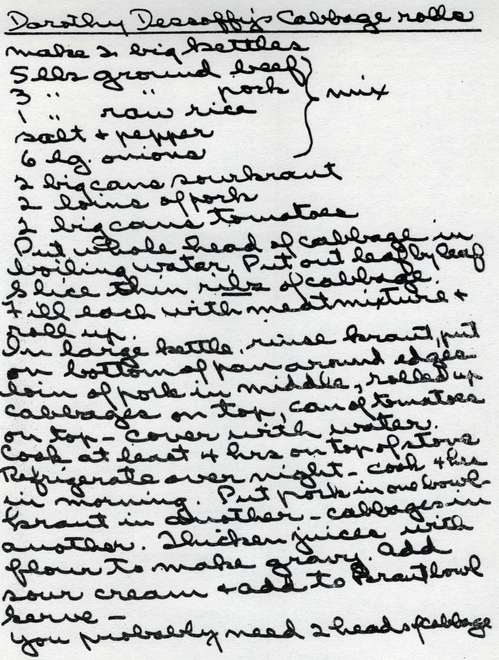 Dorothy Dessoffy's Cabbage rolls
make 2 big kettles
5 lbs ground beef
3 " " pork
1 " raw rice
mix
salt + pepper
6 lg. onions
2 big cans sourkraut
2 loins of pork
2 big cans tomatoes
Put whole head of cabbage in
boiling water. Put out leaf by leaf
Slice thin ribs of cabbage.
Fill each with meat mixture +
roll up.
In large kettle, rinse kraut, put
on bottom of pan around edges
loin of pork in middle, rolled up
cabbages on top, can of tomatoes
on top - cover with water.
Cook at least 4 hrs on top of stove
Refrigerate over night - cook 4 hrs
in morning. Put pork in one bowl-
kraut in another - cabbages in
another. Thicken juices with
flour to make gravy. add
sour cream + add to kraut bowl
serve -
You probably need 2 heads of cabbage